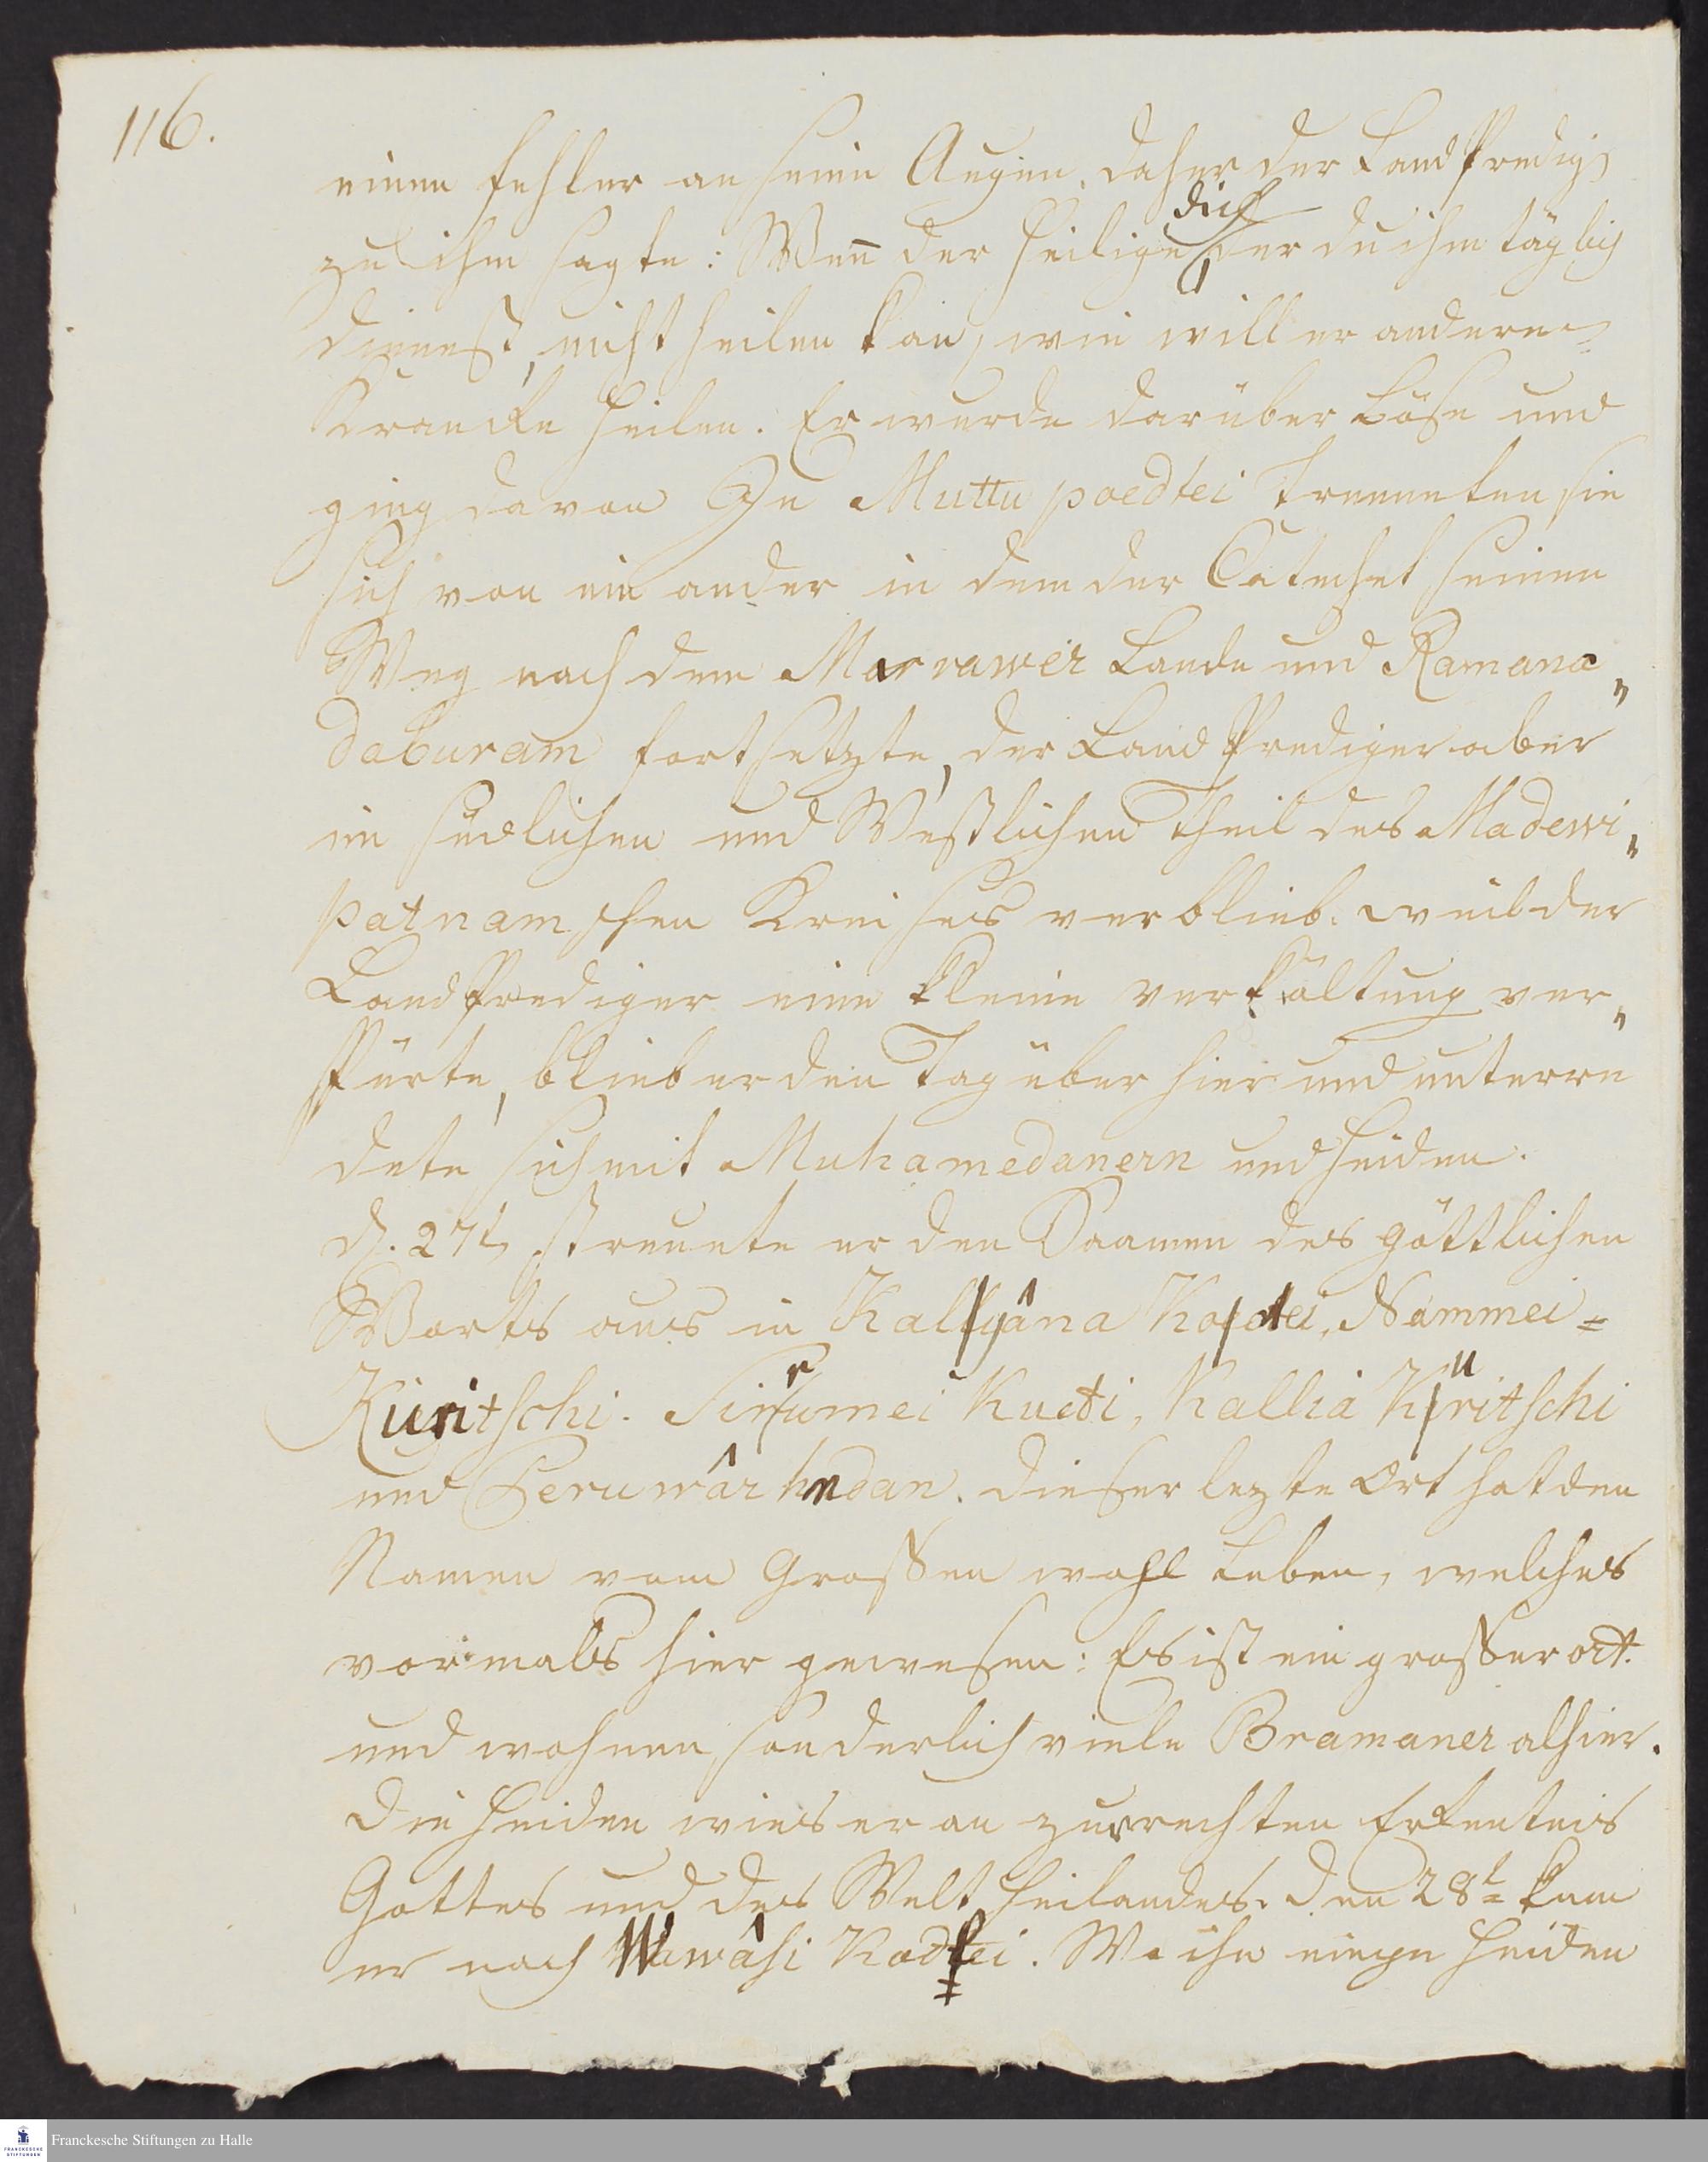 116.
einen fehler an seinen Augen. daher der Land Prediger
dich
zu ihm sagte: Weñ der heilige, der du ihm täglich
dienest, nicht heilen kan, wie will er andere
Krancke heilen. Er wurde darüber böse und
ging davon Zu Muttu poedtei trenneten sie
sich von ein ander in dem der Catechet seinen
Weg nach dem Marrawer Lande und Ramana„
daburam fortsetzte, der Land Prediger aber
im südlichen und Westlichen Theil des Madewi„
patnamschen Kreises verblieb. weil der
Land Prediger eine kleine verkältung ver„
spürte, blieb er den Tag über hier und unterre
dete sich mit Muhamedanern und Heiden.
d. 27t. streuete er den Saamen des göttlichen
Worts aus in Kalljâna Kodtei, Nammei=
Kuritschi. Sirrumei Kudti, Kallia Kuritschi
und Peruwârhndan. dieser lezte Ort hat den
Namen vom Grossen wohl Leben, welches
vormals hier gewesen: Es ist ein grosser ort.
und wohnen sonderlich viele Bramaner alhier.
die Heiden wies er an zur rechten Erkentnis
Gottes und des Welt Heilandes. den 28t= kam
er nach Wawâsi Kodtei. Wo ihn einige Heiden
Franckesche Stiftungen zu Halle